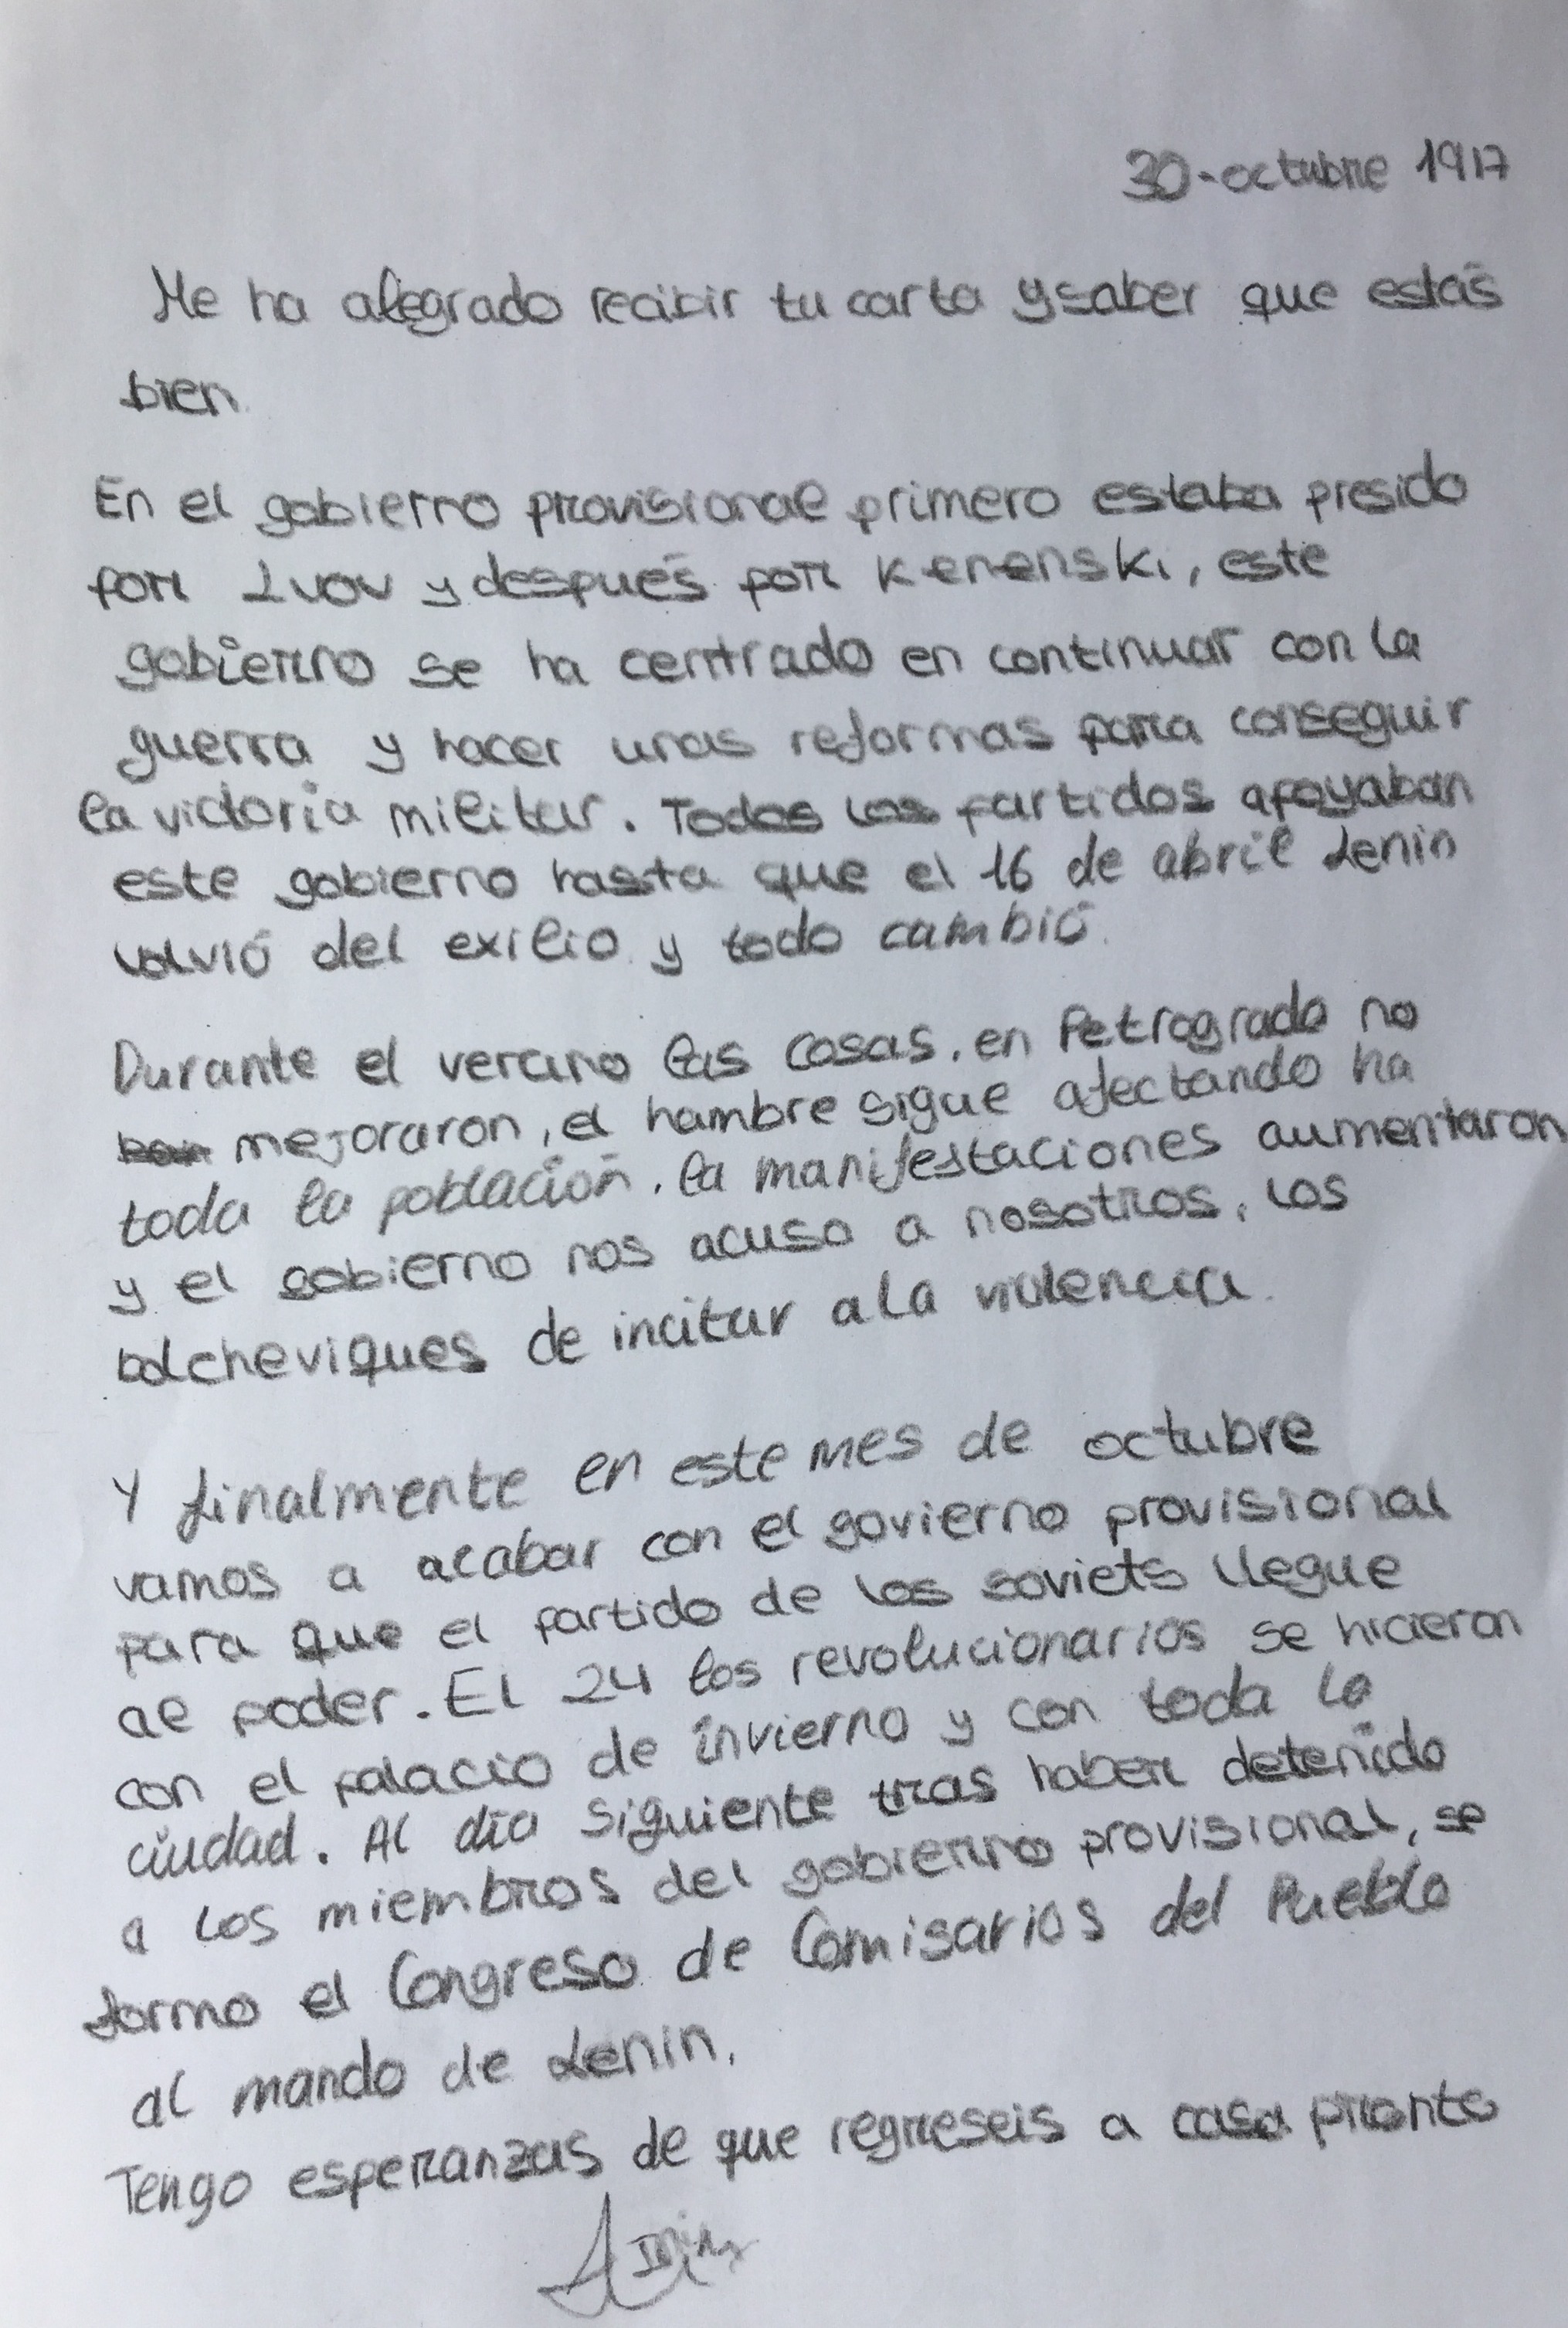 30-octubre 1917
Me ha alegrado recibir tu carta y saber que estás
bien.
En el gobierno provisional primero estaba presido
por Lvov y después por Kerenski, este
gobierno se ha centrado en continuar con la
guerra y hacer unas reformas para conseguir
la victoria militar. Todos los partidos apoyaban
este gobierno hasta que el 16 de abril Lenin
volvió del exilio y todo cambió.
Durante el verano las cosas, en Petrogrado no
mejoraron, el hambre sigue afectando ha
toda la población, la manifestaciones aumentaron
y el gobierno nos acuso a nosotros, los
bolcheviques de incitar a la violencia.
Y finalmente en este mes de octubre
vamos a acabar con el govierno provisional
para que el partido de los soviets llegue
al poder. El 24 los revolucionarios se hicieron
con el palacio de invierno y con toda la
ciudad. Al día siguiente tras haber detenido
a los miembros del gobierno provisional, se
formo el Congreso de Comisarios del Pueblo
al mando de Lenin.
Tengo esperanzas de que regreseis a casa pronto